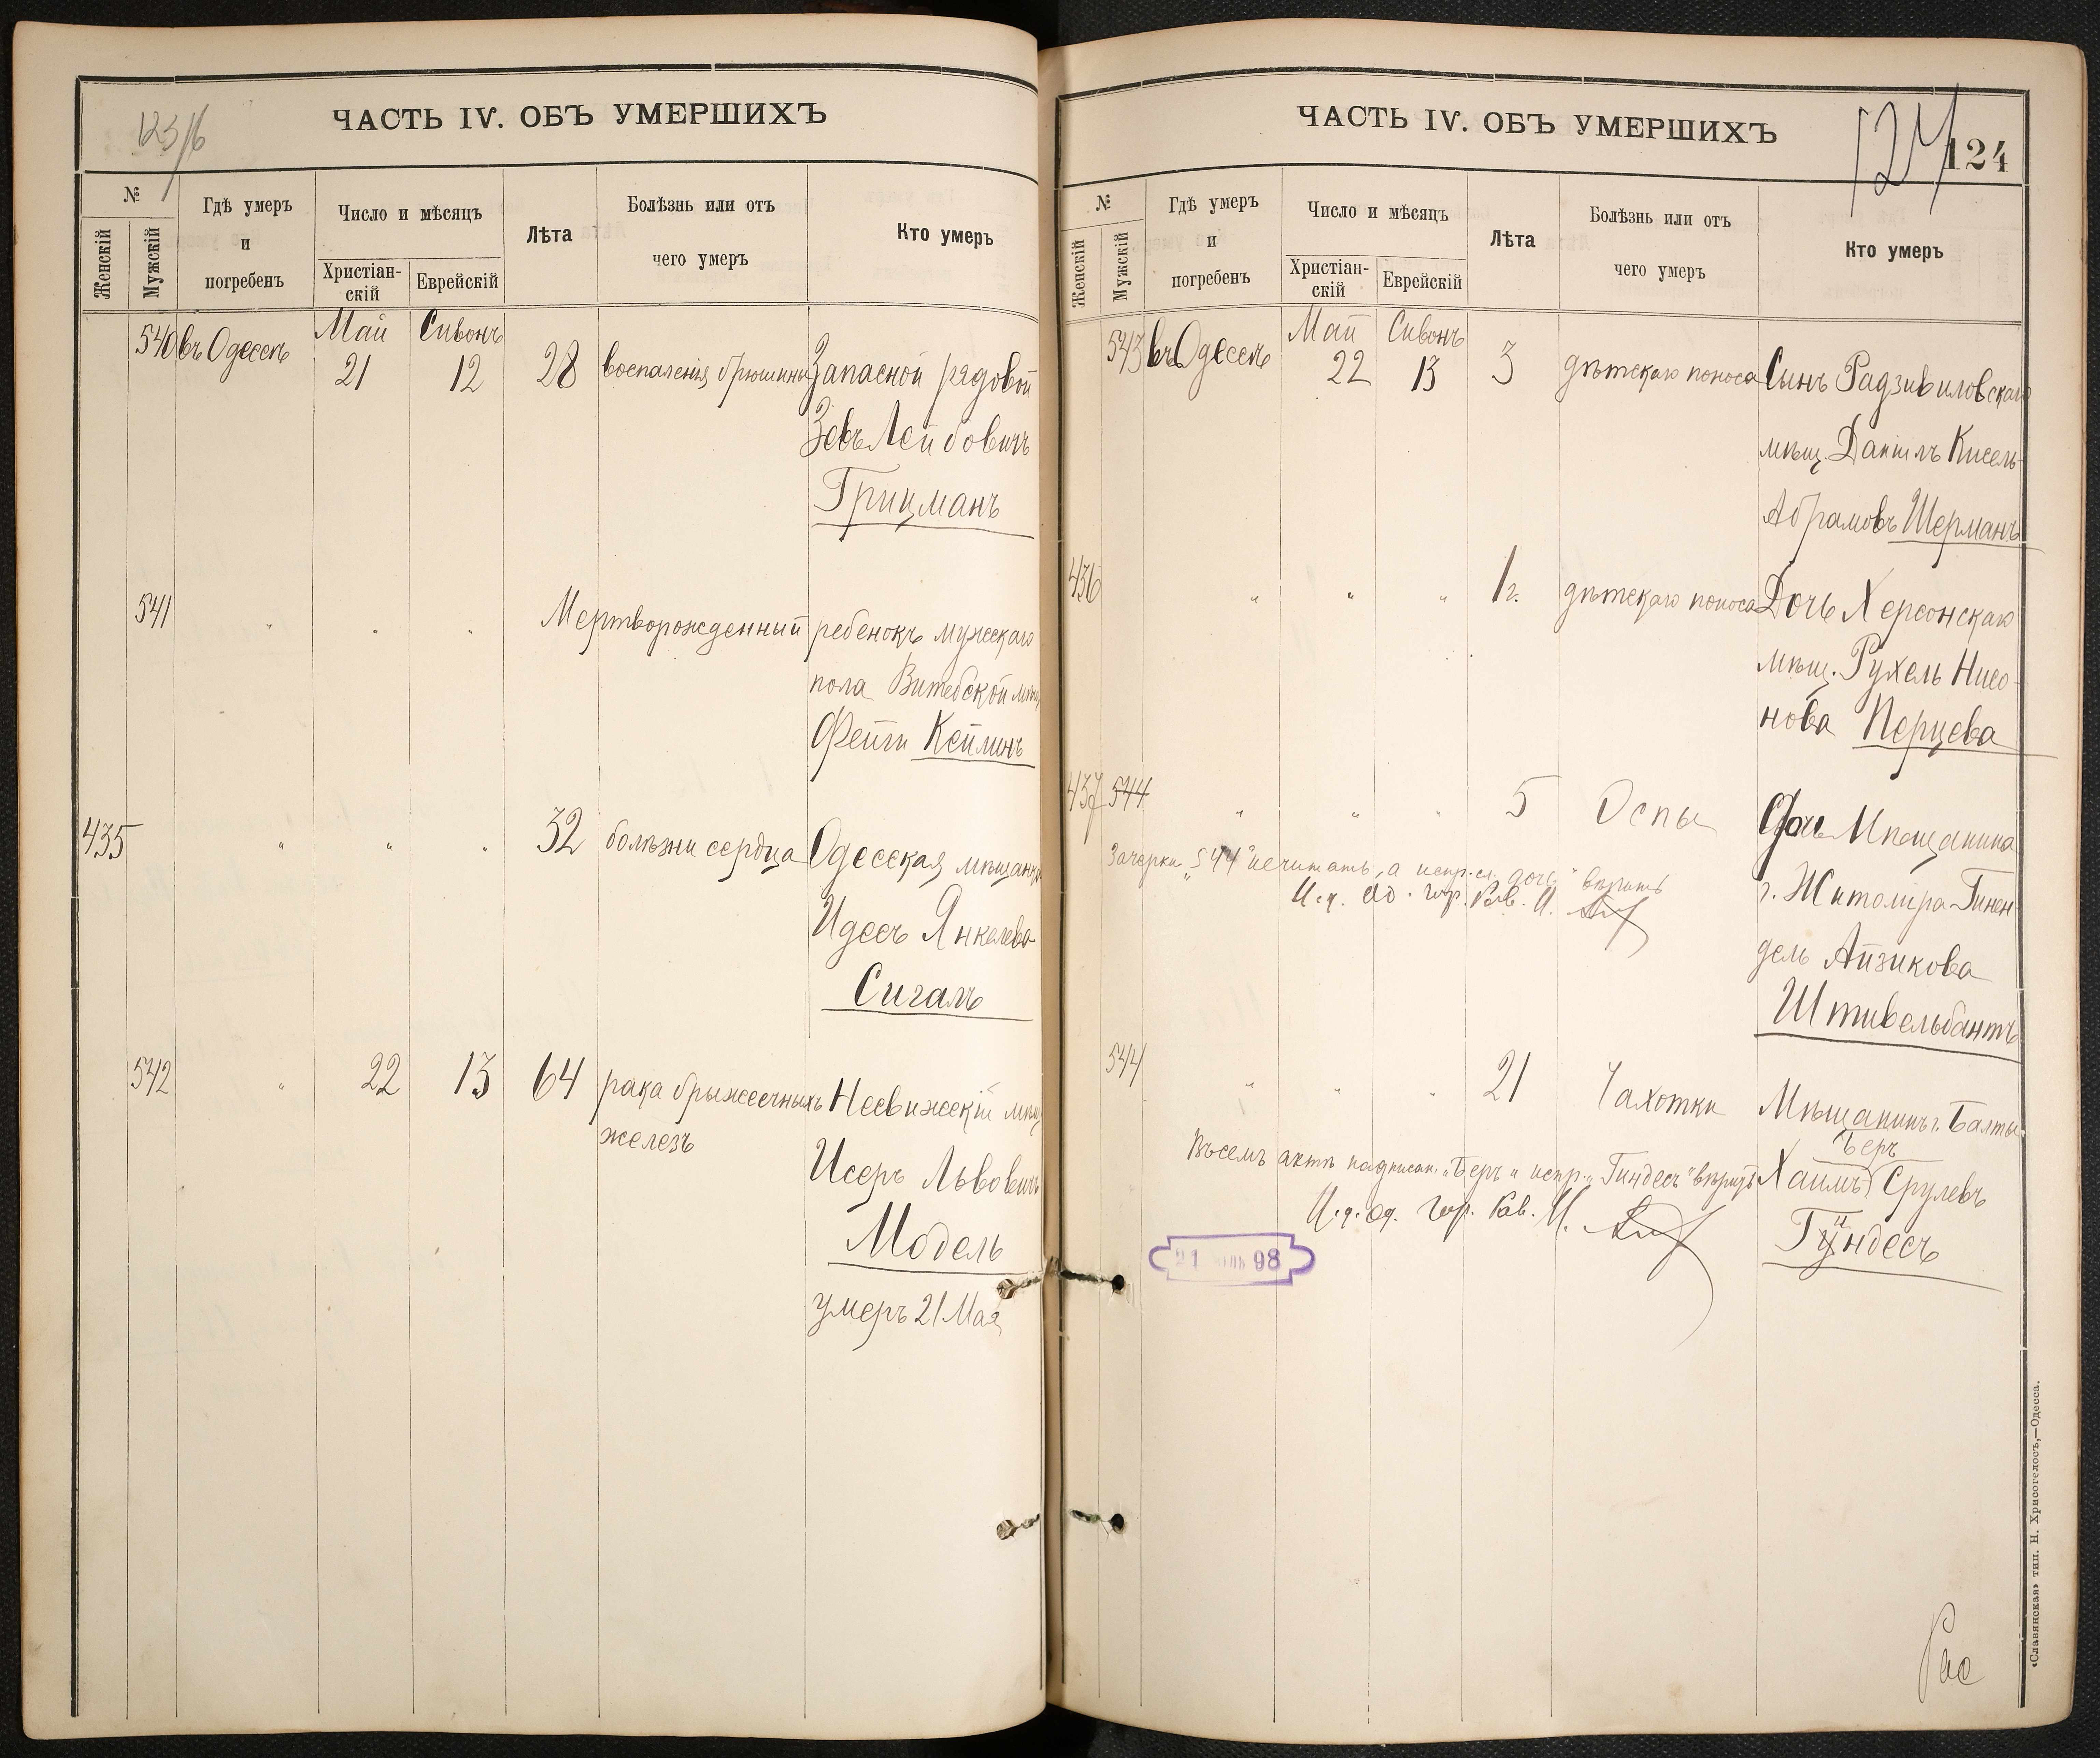 123/6
ЧАСТЬ IV. ОБЪ УМЕРШИХЪ
№
Женскій
Мужскій
Гдѣ умеръ
и
погребенъ
Число и мѣсяцъ
Христіан-
скій
Еврейскій
Лѣта
Болѣзнь или отъ
чего умеръ
Кто умеръ
Май Сивонъ
540 въ Одессѣ 21 12 28 воспаленія брюшины Запасной рядовой
Зевъ Лейбовичъ
Грицманъ
541 " " " Мертворожденный ребенокъ мужскаго
пола Витебской мѣщ.
Фейги Кейлинъ
435 " " " 32 болѣзни сердца Одесская мѣщанка
Идесъ Янкелева
Сигалъ
542 " 22 13 64 рака брыжеечныхъ Несвижскій мѣщ.
железъ
Исеръ Львовичъ
Модель
умеръ 21 Мая
ЧАСТЬ IV. ОБЪ УМЕРШИХЪ
124
124
№
Женскій
Мужскій
Гдѣ умеръ
и
погребенъ
Число и мѣсяцъ
Христіан-
скій
Еврейскій
Лѣта
Болѣзнь или отъ
чего умеръ
Кто умеръ
Май Сивонъ
543 въ Одессѣ 22 13 3 дѣтскаго поноса Сынъ Радзивиловскаго
мѣщ. Данилъ Кисель-
Абрамовъ Шерманъ
436 " " " 1 г. дѣтскаго поноса Дочь Херсонскаго
мѣщ. Рухель Нисо-
нова Перцева
437 544 " " " 5 Оспы Дочь Мѣщанина
г. Житомира Гинен
дель Айзикова
Штивельбантъ
Зачеркн. „544" нечитать, а испр. сл. „дочь" вѣрить
И. д. Од. Гор. Рав. И.
544 " " " 21 Чахотки Мѣщанинъ г. Балты
Беръ
Хаимъ Срулевъ
Гиндесъ
Въ семъ актѣ надписан. „Беръ" и испр. „Гиндесъ" вѣрить
И. д. Од. Гор. Рав. И.
21 98
«Славянская» тип. Н. Хрисогелосъ,—Одесса.